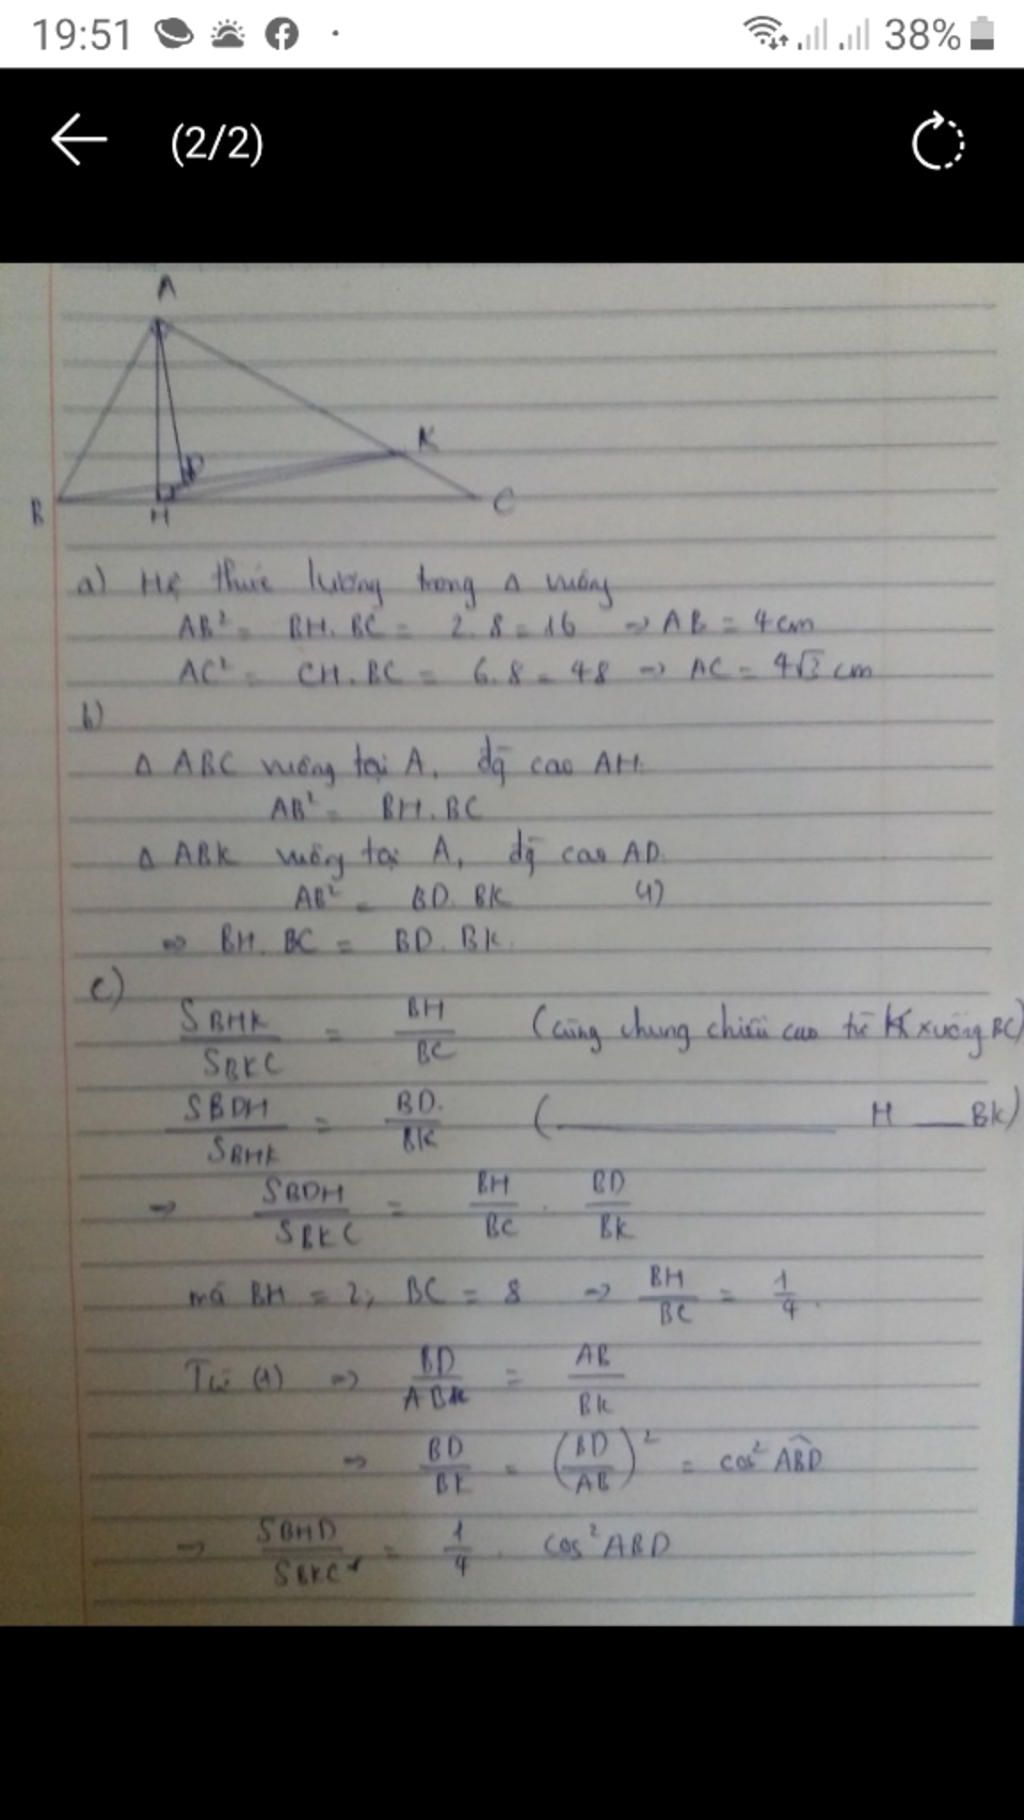 19:51 38%
(2/2)
A
K
D
B H C
a) Hệ thức lượng trong Δ vuông
AB² = BH. BC = 2. 8 = 16 => AB = 4cm
AC² = CH. BC = 6. 8 = 48 => AC = 4√3 cm
b)
Δ ABC vuông tại A, đg cao AH.
AB² = BH. BC
Δ ABK vuông tại A, đg cao AD.
AB² = BD. BK (1)
=> BH. BC = BD. BK.
c)
S BHK / S BKC = BH / BC (cùng chung chiều cao từ K xuống BC)
S BDH / S BHK = BD. / BK ( H BK)
=> S BDH / S BKC = BH / BC . BD / BK
mà BH = 2, BC = 8 => BH / BC = 1 / 4.
Từ (1) => BD / AB = AB / BK
=> BD / BK = (BD / AB)² = cos² ABD
=> S BHD / S BKC = 1 / 4 . cos² ABD